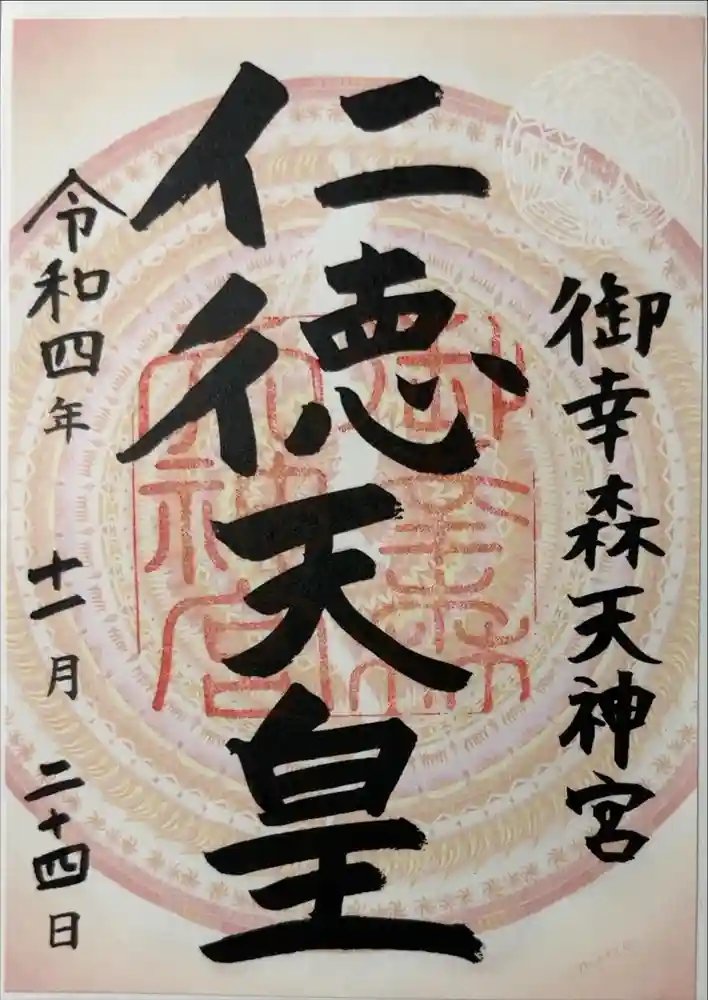 御幸森天神宮
仁徳天皇
令和四年 十一月 二十四日